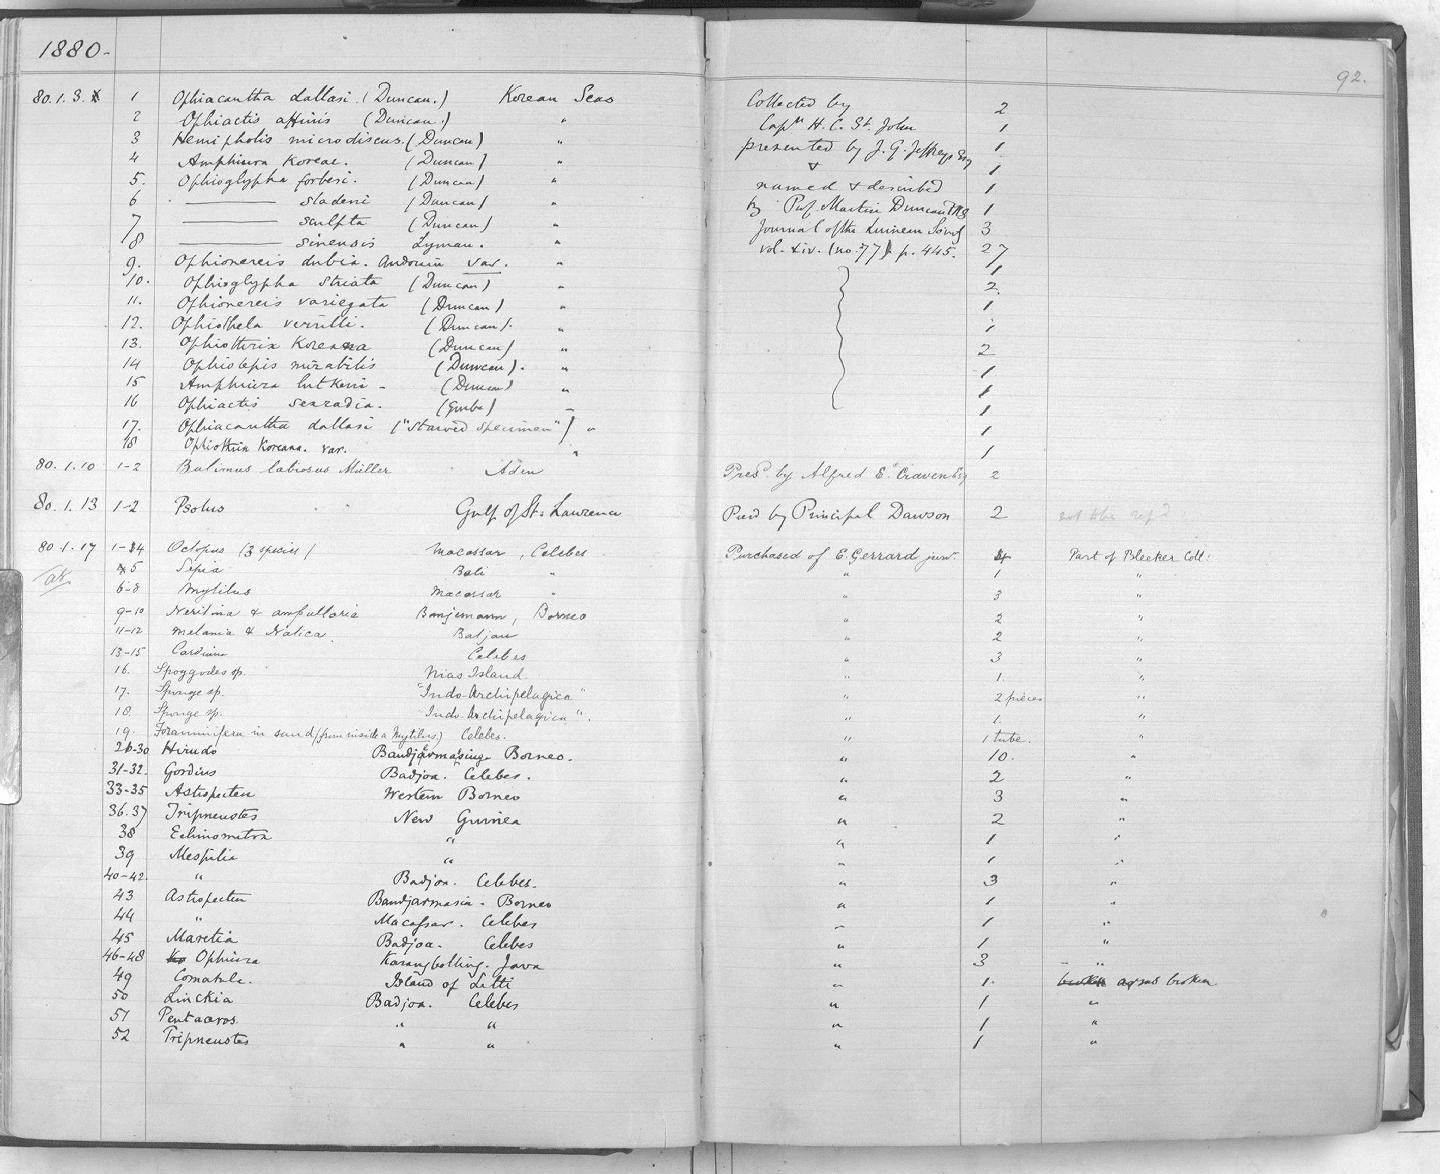 1880.
92.
80.1.3. 1 Ophiacantha dallasi (Duncan.) Korean Seas Collected by 2
2 Ophiactis affinis (Duncan.) " Capt. H. C. St. John 1
3 Hemipholis microdiscus. (Duncan) " presented by J. G. Jeffreys Esq 1
4 Amphiura Koreae. (Duncan) " & 1
5. Ophioglypha forbesi. (Duncan) " named & described 1
6 ——— sladeni (Duncan) " by Prof Martin Duncan 1
7 ——— sculpta (Duncan) " Journal of the Linnean Society 3
8 ——— sinensis Lyman. " vol. xiv. (no. 77) p. 445. 27
9. Ophionereis dubia. Audouin var. " 1
10. Ophioglypha striata (Duncan) " 2
11. Ophionereis variegata (Duncan) " 1
12. Ophiothela verrilli. (Duncan). " 1
13. Ophiothrix Koreana (Duncan) " 2
14 Ophiolepis mirabilis (Duncan). " 1
15 Amphiura lutkeni - (Duncan) " 1
16 Ophiactis sexradia. (Grube) " 1
17. Ophiacantha dallasi ("starved specimen") " 1
18 Ophiothrix Koreana. var. " 1
80.1.10 1-2 Bulimus labiosus Müller Aden Presd. by Alfred E. Craven Esq 2
80.1.13 1-2 Psolus Gulf of St. Lawrence Presd by Principal Dawson 2
80.1.17 1-4 Octopus (3 species) Macassar, Celebes Purchased of E. Gerrard junr. 4 Part of Bleeker Coll:
5 Sepia Bali " " 1 "
6-8 Mytilus Macassar " " 3 "
9-10 Neritina & ampullaria Banjemann, Borneo " 2 "
11-12 Melania & Natica. Batjan " 2 "
13-15 Cardium Celebes " 3 "
16. Spoggodes sp. Nias Island " 1. "
17. Sponge sp. "Indo-Archipelagica" " 2 pieces "
18. Sponge sp. "Indo-Archipelagica". " 1. "
19. Foraminifera in sand (from inside a Mytilus.) Celebes. " 1 tube. "
21-30 Hirudo Bandjarmasing Borneo. " 10. "
31-32. Gordius Badjoa. Celebes. " 2 "
33-35 Astropecten Western Borneo " 3 "
36.37 Tripneustes New Guinea " 2 "
38 Echinometra " " 1 "
39 Mespilia " " 1 "
40-42. " Badjoa. Celebes. " 3 "
43 Astropecten Bandjarmasin - Borneo " 1 "
44 " Macassar. Celebes " 1 "
45 Maretia Badjoa. Celebes " 1 "
46-48 Ophiura Karangbolling. Java " 3 "
49 Comatula. Island of Letti " 1. arms broken
50 Linckia Badjoa. Celebes " 1 "
51 Pentaceros. " " " 1 "
52 Tripneustes " " " 1 "